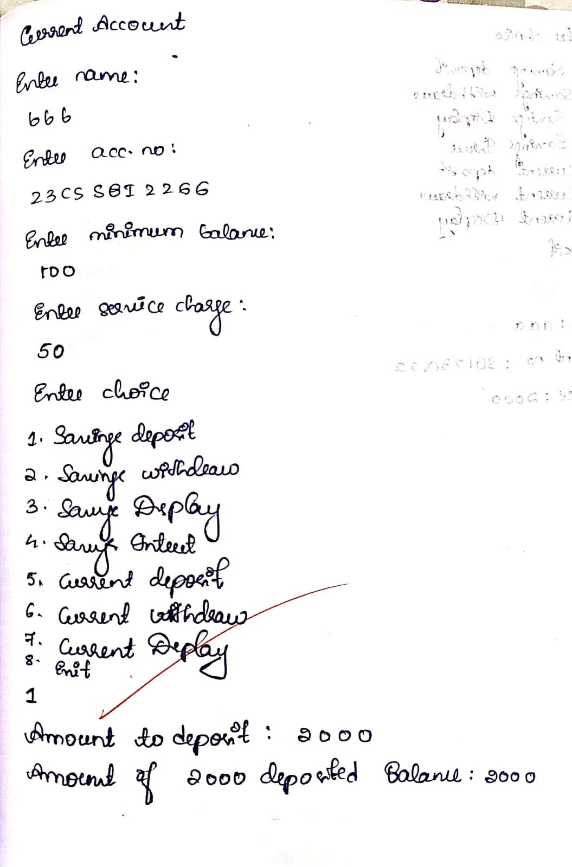 Current Account
Enter name:
bbb
Enter acc. no:
23CS SBI 2266
Enter minimum balance:
100
Enter service charge:
50
Enter choice
1. Savings deposit
2. Savings withdraw
3. Savings Display
4. Savings Interest
5. Current deposit
6. Current withdraw
7. Current Display
8. Exit
1
Amount to deposit: 2000
Amount of 2000 deposited Balance: 2000